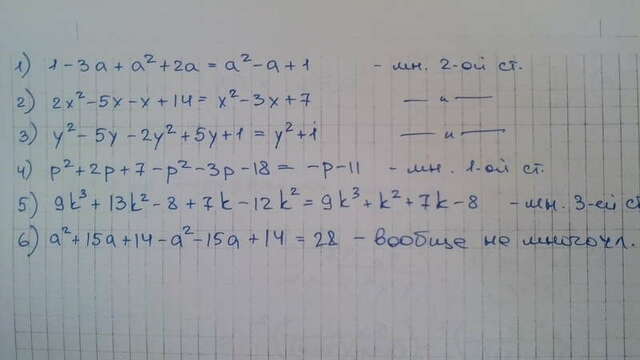 1) 1-3a+a²+2a = a²-a+1 - мн. 2-ой ст.
2) 2x²-5x-x+14 = x²-3x+7 — " —
3) y²-5y-2y²+5y+1 = y²+1 — " —
4) p²+2p+7-p²-3p-18 = -p-11 - мн. 1-ой ст.
5) 9k³+13k²-8+7k-12k² = 9k³+k²+7k-8 - мн. 3-ей ст
6) a²+15a+14-a²-15a+14 = 28 - вообще не многочл.